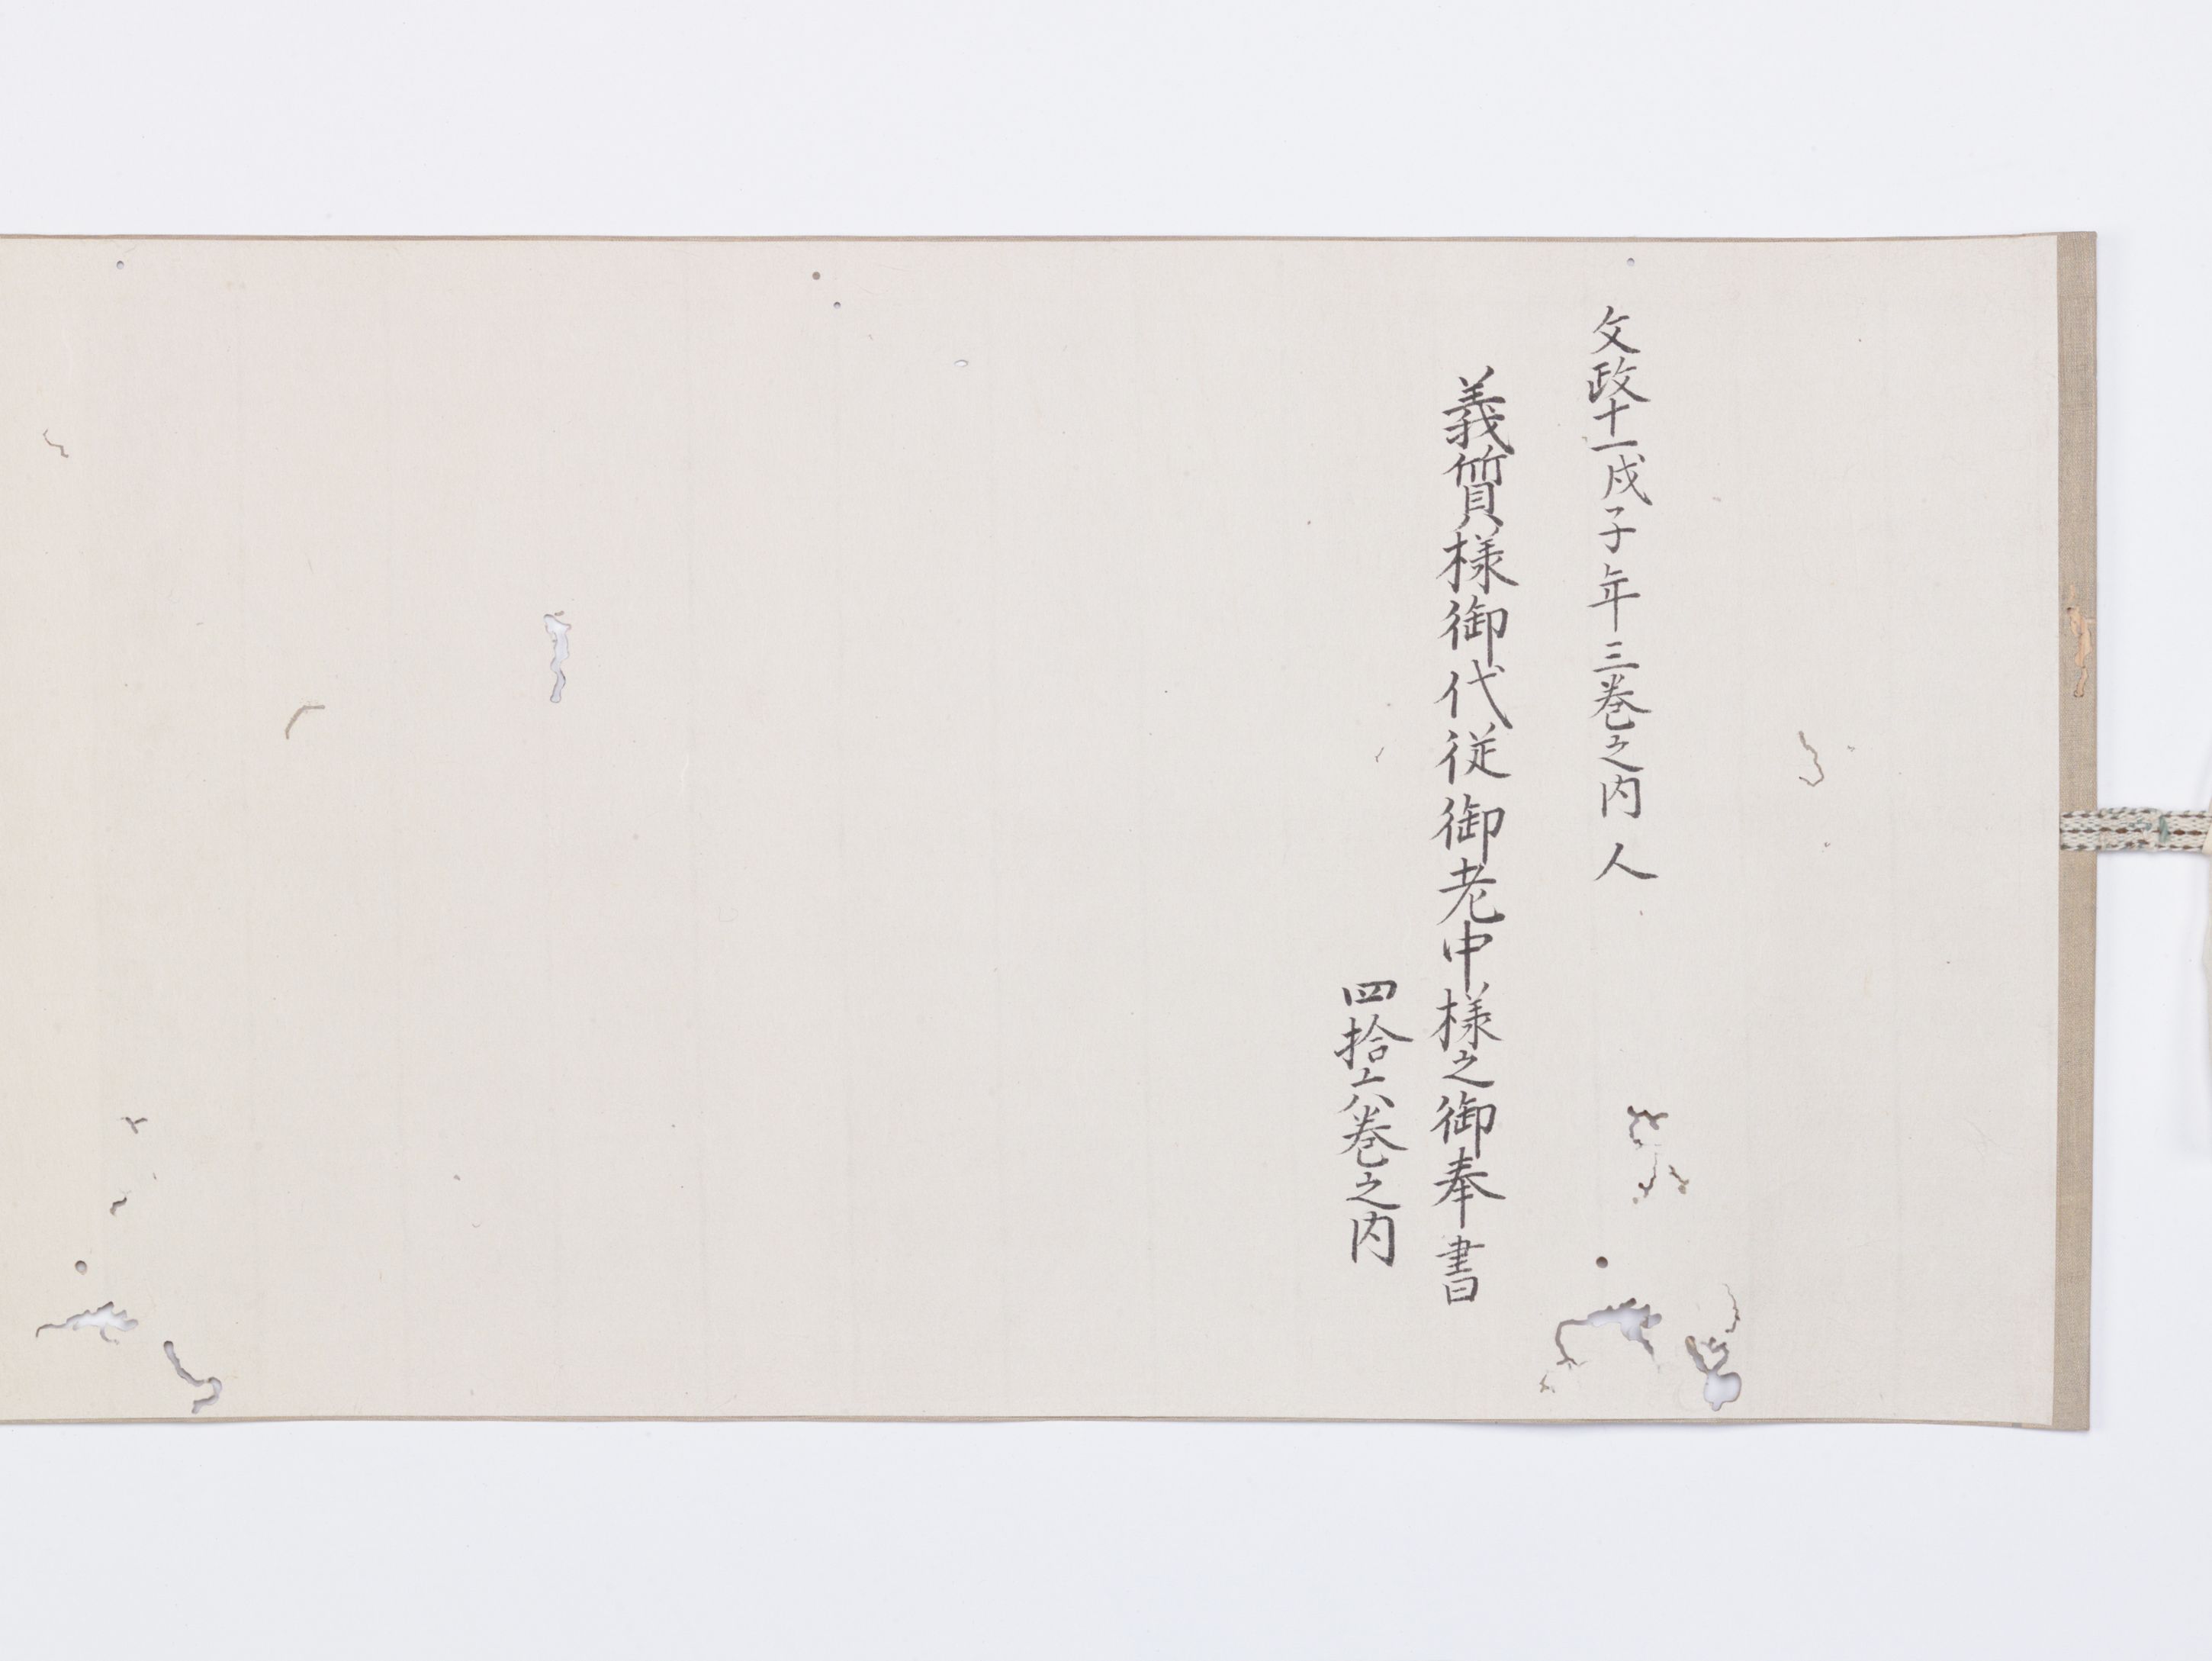 文政十一戊子年三巻之内人
義質様御代従御老中様之御奉書
四拾六巻之内